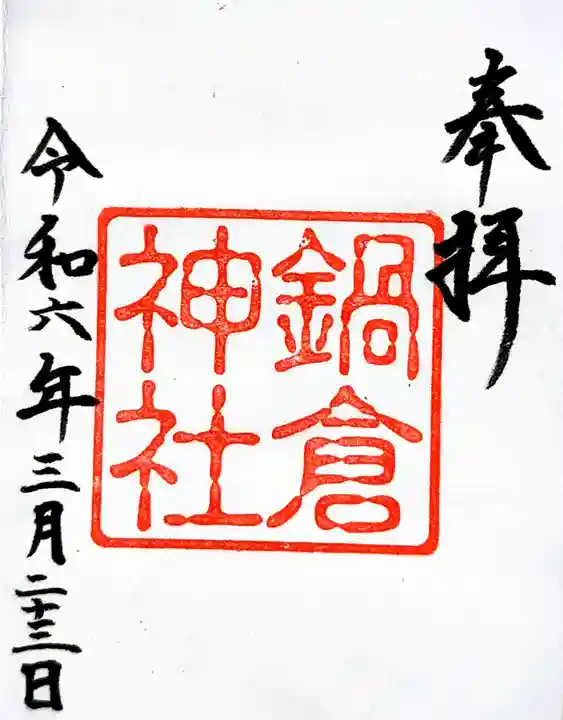 奉拝
鍋倉
神社
令和六年三月二十三日